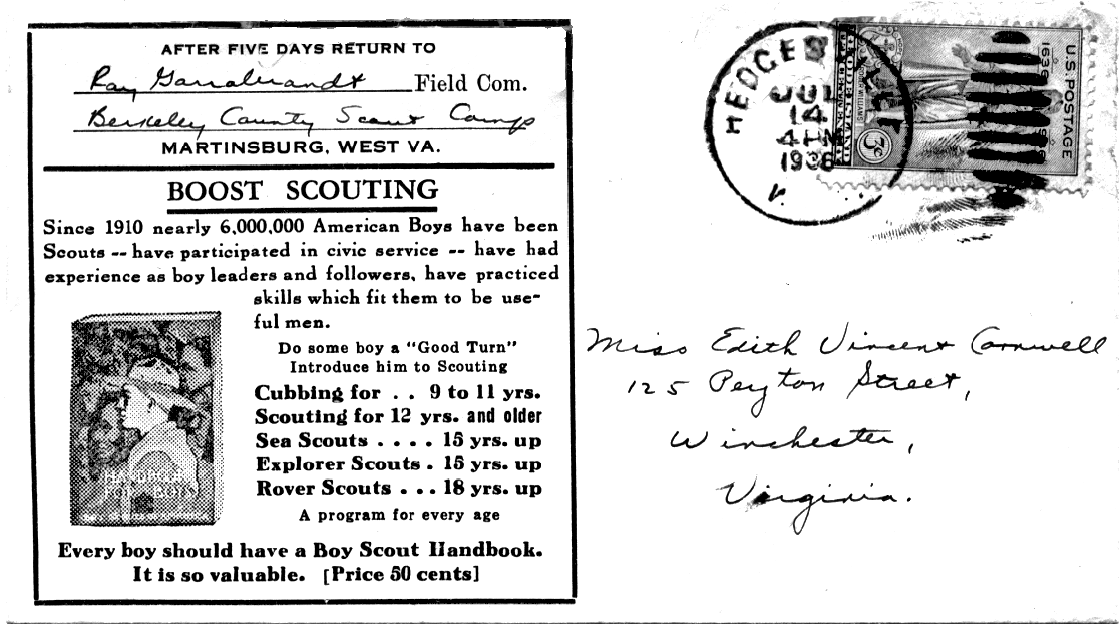 AFTER FIVE DAYS RETURN TO
Ray Garrabrandt Field Com.
Berkeley County Scout Camp
MARTINSBURG, WEST VA.
BOOST SCOUTING
Since 1910 nearly 6,000,000 American Boys have been
Scouts -- have participated in civic service -- have had
experience as boy leaders and followers, have practiced
skills which fit them to be use-
ful men.
Do some boy a "Good Turn"
Introduce him to Scouting
Cubbing for . . 9 to 11 yrs.
Scouting for 12 yrs. and older
Sea Scouts . . . . 15 yrs. up
Explorer Scouts . 15 yrs. up
Rover Scouts . . . 18 yrs. up
A program for every age
HANDBOOK
FOR BOYS
Every boy should have a Boy Scout Handbook.
It is so valuable. [Price 50 cents]
JUL
14
4 PM
1936
U.S. POSTAGE
1636
3¢
Miss Edith Vincent Cornwell
125 Peyton Street,
Winchester,
Virginia.